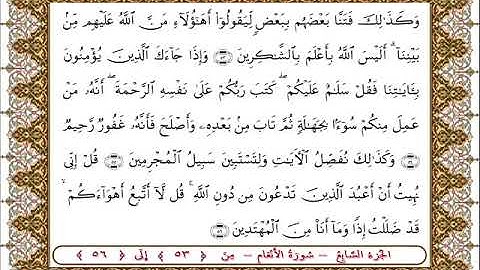 وَكَذَٰلِكَ فَتَنَّا بَعْضَهُم بِبَعْضٍ لِّيَقُولُوٓا۟ أَهَٰٓؤُلَآءِ مَنَّ ٱللَّهُ عَلَيْهِم مِّنۢ
بَيْنِنَآ ۗ أَلَيْسَ ٱللَّهُ بِأَعْلَمَ بِٱلشَّٰكِرِينَ ﴿٥٣﴾ وَإِذَا جَآءَكَ ٱلَّذِينَ يُؤْمِنُونَ
بِـَٔايَٰتِنَا فَقُلْ سَلَٰمٌ عَلَيْكُمْ ۖ كَتَبَ رَبُّكُمْ عَلَىٰ نَفْسِهِ ٱلرَّحْمَةَ ۖ أَنَّهُۥ مَنْ
عَمِلَ مِنكُمْ سُوٓءًۢا بِجَهَٰلَةٍ ثُمَّ تَابَ مِنۢ بَعْدِهِۦ وَأَصْلَحَ فَأَنَّهُۥ غَفُورٌ رَّحِيمٌ
﴿٥٤﴾ وَكَذَٰلِكَ نُفَصِّلُ ٱلْـَٔايَٰتِ وَلِتَسْتَبِينَ سَبِيلُ ٱلْمُجْرِمِينَ ﴿٥٥﴾ قُلْ إِنِّى
نُهِيتُ أَنْ أَعْبُدَ ٱلَّذِينَ تَدْعُونَ مِن دُونِ ٱللَّهِ ۚ قُل لَّآ أَتَّبِعُ أَهْوَآءَكُمْ ۙ
قَدْ ضَلَلْتُ إِذًا وَمَآ أَنَا۠ مِنَ ٱلْمُهْتَدِينَ ﴿٥٦﴾
الجزء السابع - سورة الأنعام - من ﴿ ٥٣ ﴾ إلى ﴿ ٥٦ ﴾